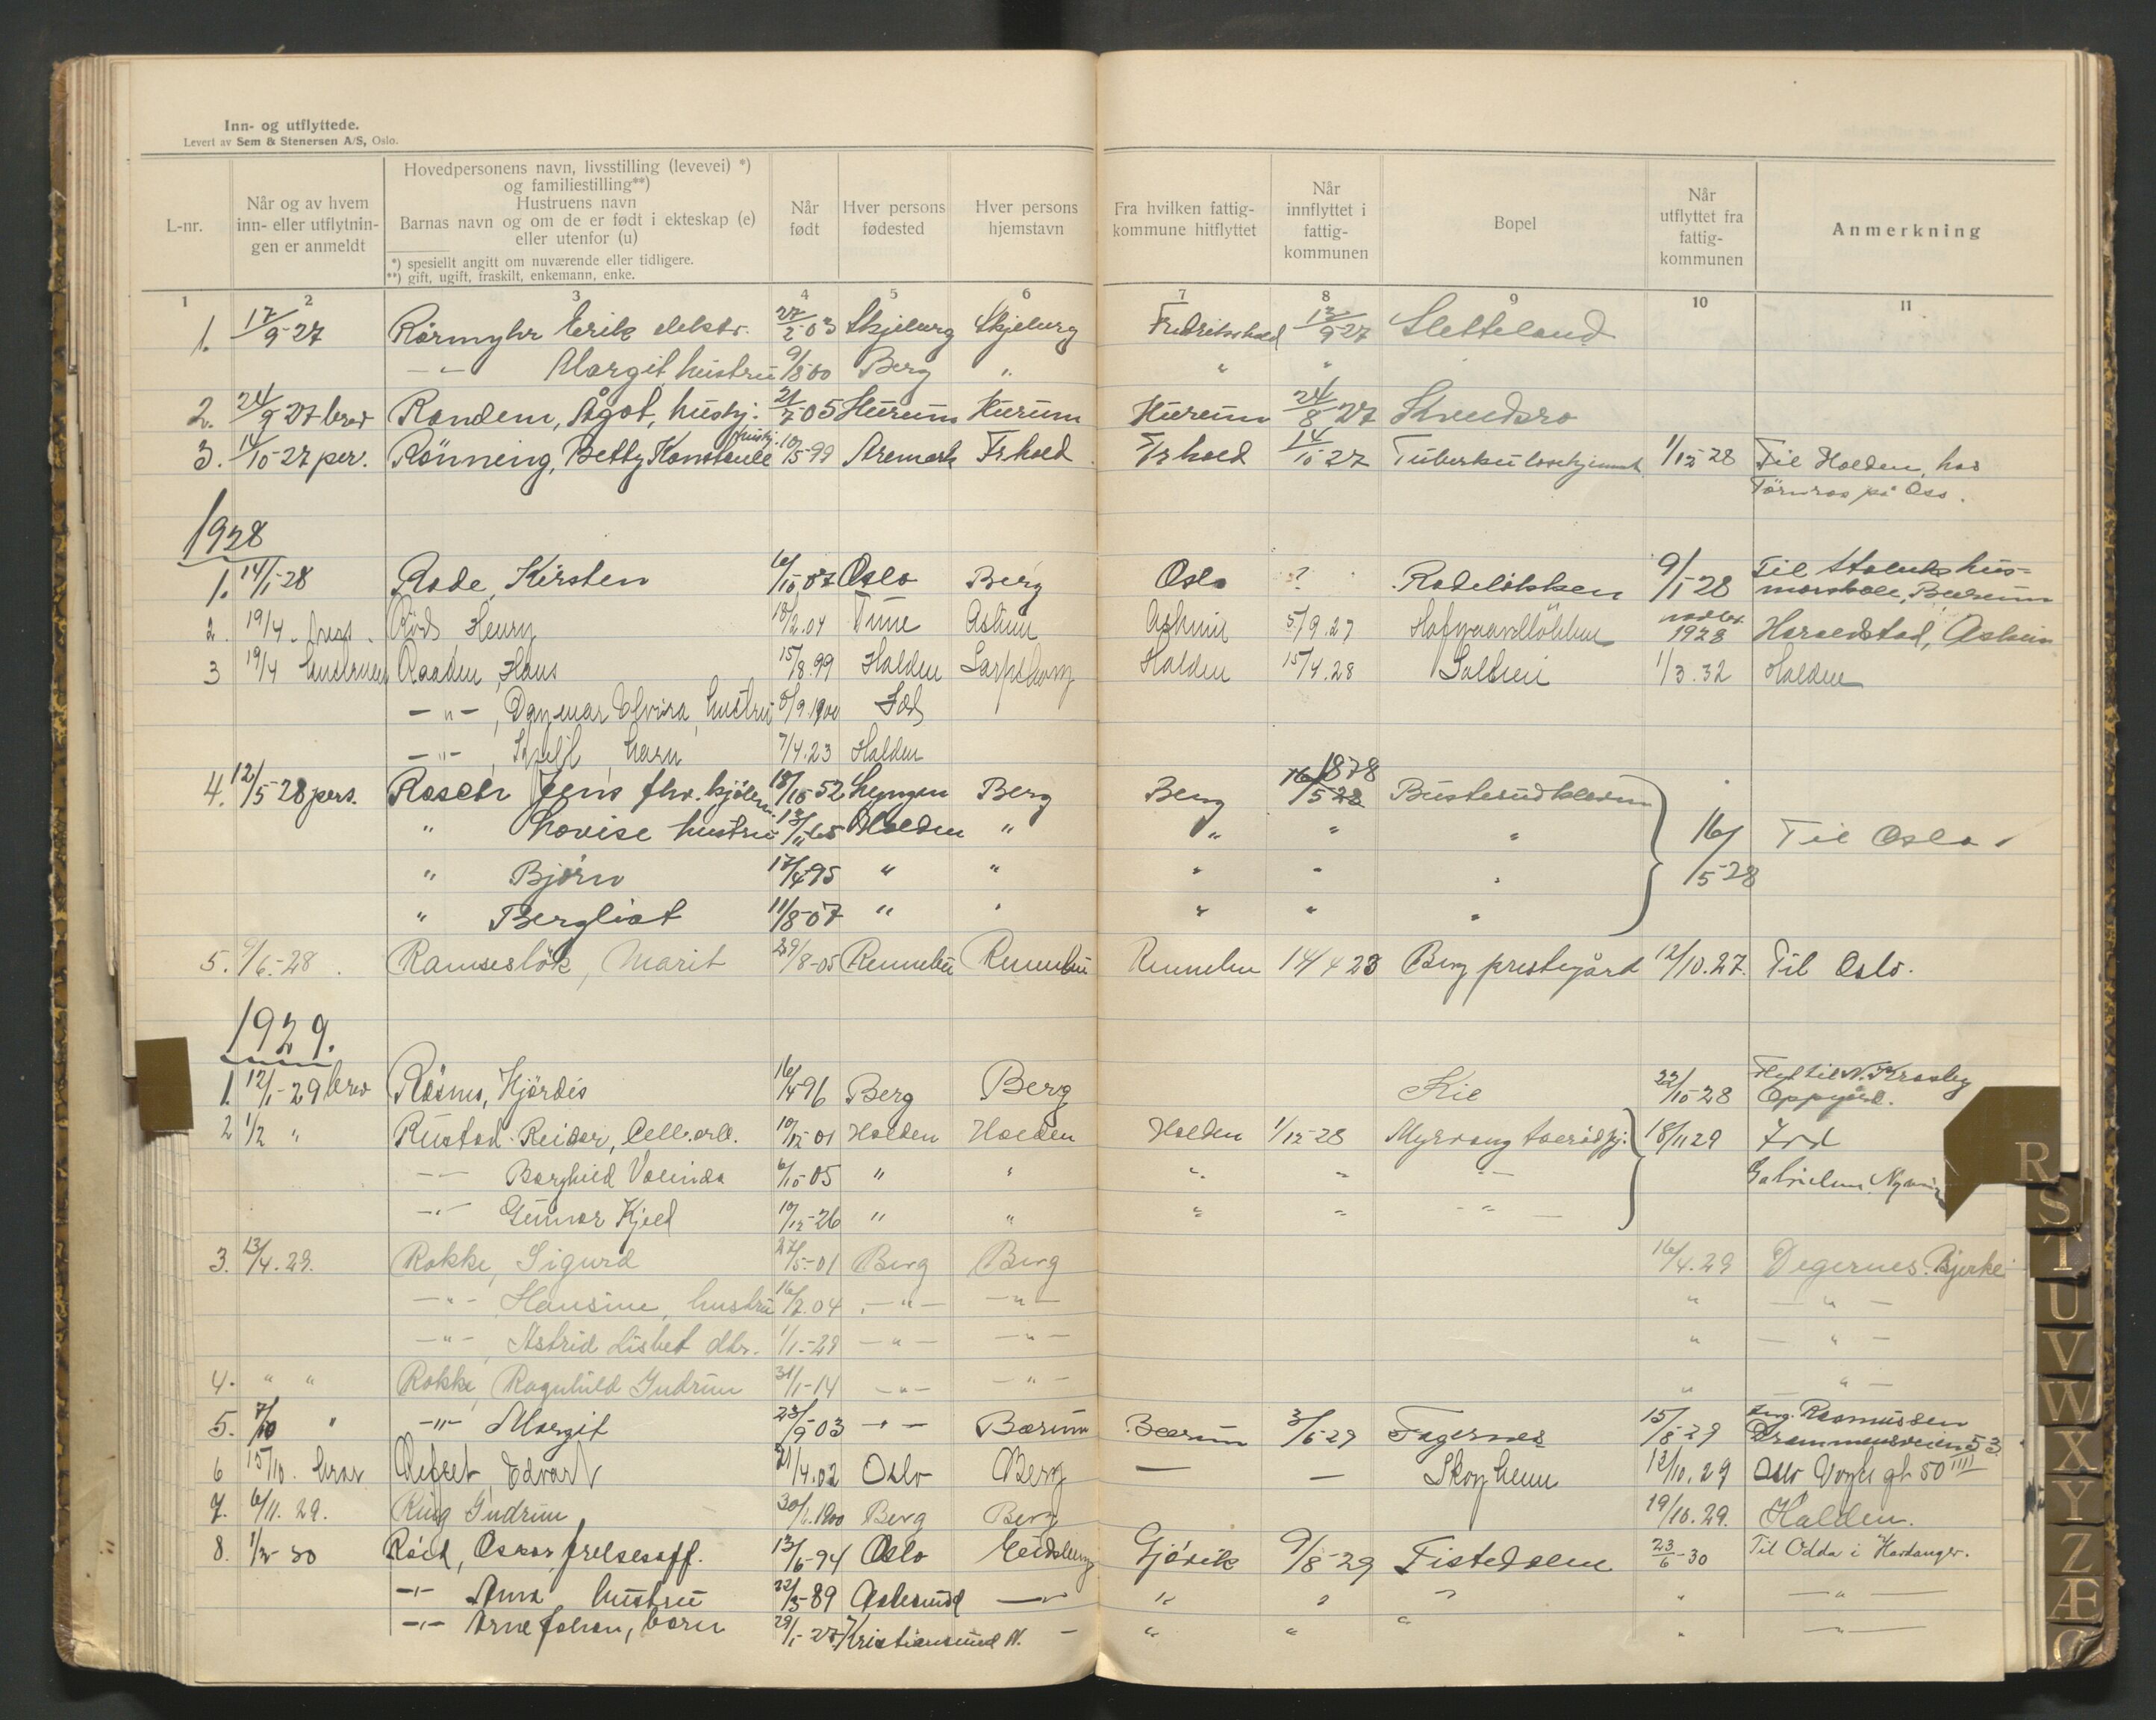 Inn- og utflyttede.
Levert av Sem & Stenersen A/S, Oslo.
L-nr.
Når og av hvem inn- eller utflytnin- gen er anmeldt
Hovedpersonens navn, livsstilling (levevei) *)
og familiestilling**)
Hustruens navn
Barnas navn og om de er født i ekteskap (e)
eller utenfor (u)
*) spesiellt angitt om nuværende eller tidligere.
**) gift, ugift, fraskilt, enkemann, enke.
Når født
Hver persons fødested
Hver persons hjemstavn
Fra hvilken fattig- kommune hitflyttet
Når innflyttet i fattig- kommunen
Bopel
Når utflyttet fra fattig- kommunen
Anmerkning
1 2 3 4 5 6 7 8 9 10 11
1. 17/9-27 Rörmyhr Erik elektr. 27/2-03 Skjeberg Skjeberg Fredrikshald 13/9-27 Sletteland
-"- Margit hustru 9/8-00 Berg " " "
2. 24/9-27 brev Randem, Ågot, hushj. 21/7-05 Hurum Hurum Hurum 24/8-27
3. 14/10-27 per. Rönning, Betty Konstanse hushj. 10/5-99 Aremark Fr.hald Fr.hald 14/10-27 Tuberkulosehjemmet 1/12-28 Til Halden, hos
Törnros på Oss.
1928
1. 14/1-28 Rode, Kirsten 6/10-07 Oslo Berg Oslo ? Rodeløkken 9/1-28 Til Stabekk hus=
morskole, Bærum
2. 19/4 brev. Röd Henry 18/2.04 Tune Askim Askim 5/9.27 1928 Haraldstad, Askim
3 19/4 Raaden, Hans 15/8.99 Halden Sarpsborg Halden 15/4.28 1/3.32 Halden
-"-, Dagmar Elvira, hustru 8/9.1900 Idd
-"-, Kjell, barn 7/4.23 Halden
4. 12/5-28 pers. Rasch Jens fhv. 18/10-52 Lyngen Berg Berg 16/5-28 1878 Busterudkleven
" Lovise hustru 13/11-65 Halden " " " " 16/5-28 Til Oslo
" Björn 17/4-95 " " " " "
" Bergliot 11/8-07 " " " " "
5. 9/6-28. Ramseslök, Marit 29/8-05 Rennebu Rennebu Rennebu 14/4 28 Berg prestegård 12/10.27. Til Oslo.
1929.
1. 12/1-29 brev Rösnes, Hjördis 16/4-96 Berg Berg Kie 22/10-28
Oppegård.
2 1/2 " Rustad Reidar, Cell.arb. 10/12-01 Halden Halden Halden 1/12-28 Myrvang 18/11 29 Idd
-"- Borghild Valinda 6/10-05 " " " " -"-
-"- Gunnar Kjell 10/12-26 " " " " -"-
3. 13/4.29. Rokke, Sigurd 27/5-01 Berg Berg 16/4.29 Degernes. Bjerke
-"- Hansine, hustru 16/2.04 -"- -"- " -"-
-"- Astrid Lisbet dtr. 1/1-29 -"- -"- " -"-
4. " " Rokke, Ragnhild Gudrun 31/1-14 -"- -"- " "
5. 7/10 " -"- Margit 23/9-03 -"- Bærum Bærum 3/6-29 Fagernes 15/8-29 Ing. Rasmussen
Drammensveien 53
6 15/10. brev Refset, Edvart 21/4.02 Oslo Berg — — Skogheim 12/10.29 Oslo Vogts gt 50 IIII
7. 6/11. 29. Ring Gudrun 30/6.1900 Berg Berg 19/10.29. Halden.
8. 1/3-30 Röed, Oskar frelsesoff. 13/6-94 Oslo Eidsberg Gjövik 9/8-29 Tistedalen 23/6-30 Til Odda i Hardanger.
-"- Anna hustru 22/3-89 Aalesund -"- " " " " -"-
-"- Arne Johan, barn 29/1-27 Kristiansund N. - " " " " -"-
R
S
T
U
V
W
X
Y
Z
Æ